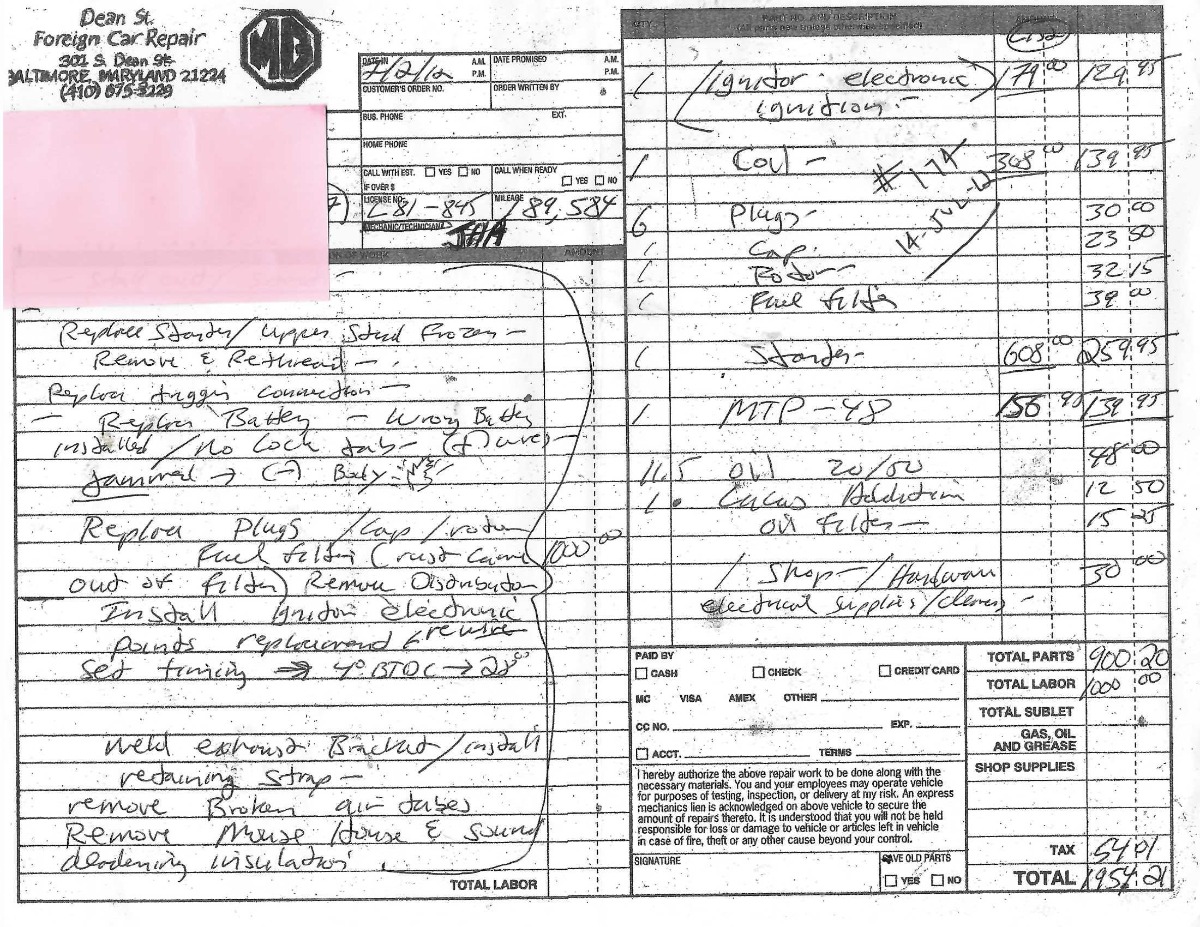 Dean St.
Foreign Car Repair
301 S. Dean St.
BALTIMORE, MARYLAND 21224
(410) 675-3229
MG
DATE IN 7/2/12 A.M. P.M.
DATE PROMISED A.M. P.M.
CUSTOMER'S ORDER NO.
ORDER WRITTEN BY
BUS. PHONE EXT.
HOME PHONE
CALL WITH EST. YES NO
IF OVER $
CALL WHEN READY
YES NO
LICENSE NO. L81-845
MILEAGE 189,584
MECHANIC/TECHNICIAN
OF WORK AMOUNT
Replace Starter/ upper Stud Frozen -
Remove & Rethread -
Replace trigger connection -
- Replace Battery - Wrong Battery
installed / no Lock tab - (+) wires -
jammed → (-) Body
Replace Plugs / Cap / rotor
Fuel filter (rust came 1000 00
out of filter) Remove Distributor
Install Ignitor electronic
points replacement & rewire
Set timing → 4° BTDC → 28°
Weld exhaust Bracket / install
retaining strap -
remove Broken air tubes
Remove Mouse House & Sound
deadening insulation
TOTAL LABOR
QTY. PART NO. AND DESCRIPTION AMOUNT
(All parts new unless otherwise specified)
List
1 (Ignitor - electronic) 179 00 129.95
ignition -
1 Coil - 308 00 139 95
#174
14-JUL-12
6 Plugs - 30 00
1 Cap. 23 50
1 Rotor - 32 15
1 Fuel filter 39 00
1 Starter - 608 00 259.95
1 MTP-48 156 95 139 95
11.5 oil 20/50 48 00
1 Lucas Addition 12 50
oil filter - 15 25
/ Shop - / Hardware 30 00
electrical supplies / cleaner -
PAID BY
CASH CHECK CREDIT CARD
MC VISA AMEX OTHER
CC NO. EXP.
ACCT. TERMS
I hereby authorize the above repair work to be done along with the
necessary materials. You and your employees may operate vehicle
for purposes of testing, inspection, or delivery at my risk. An express
mechanics lien is acknowledged on above vehicle to secure the
amount of repairs thereto. It is understood that you will not be held
responsible for loss or damage to vehicle or articles left in vehicle
in case of fire, theft or any other cause beyond your control.
SIGNATURE
SAVE OLD PARTS
YES NO
TOTAL PARTS 900.20
TOTAL LABOR 1000 00
TOTAL SUBLET
GAS, OIL
AND GREASE
SHOP SUPPLIES
TAX 54 01
TOTAL 1954.21